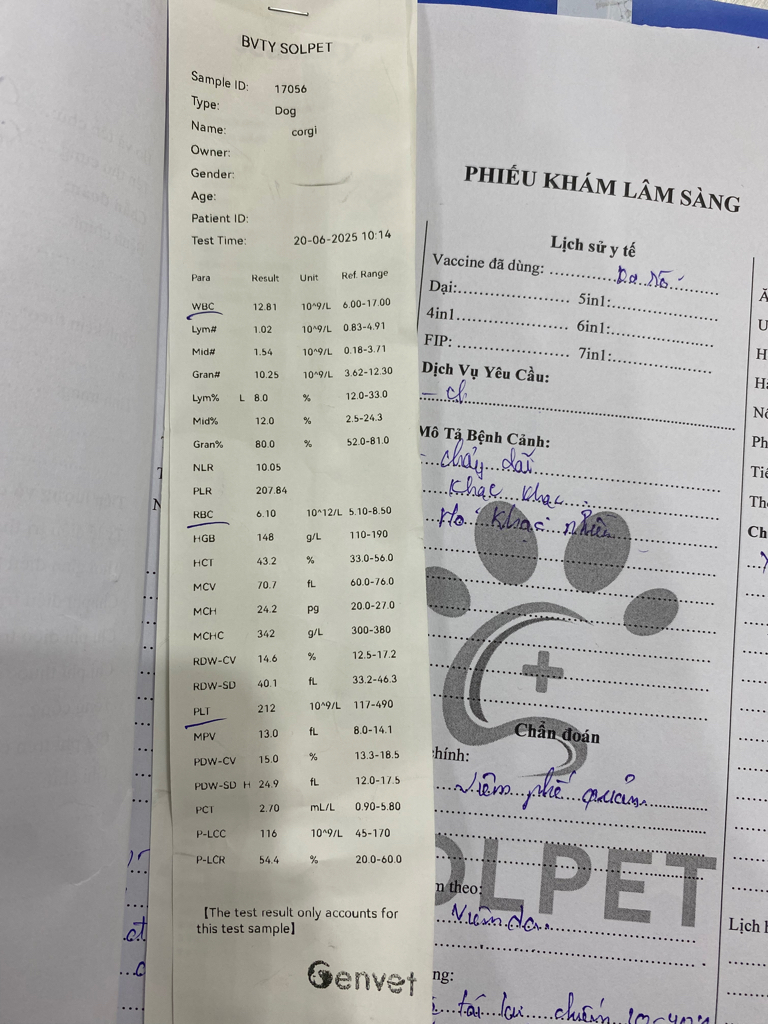 BVTY SOLPET
Sample ID: 17056
Type: Dog
Name: corgi
Owner:
Gender:
Age:
Patient ID:
Test Time: 20-06-2025 10:14
Para Result Unit Ref. Range
WBC 12.81 10^9/L 6.00-17.00
Lym# 1.02 10^9/L 0.83-4.91
Mid# 1.54 10^9/L 0.18-3.71
Gran# 10.25 10^9/L 3.62-12.30
Lym% L 8.0 % 12.0-33.0
Mid% 12.0 % 2.5-24.3
Gran% 80.0 % 52.0-81.0
NLR 10.05
PLR 207.84
RBC 6.10 10^12/L 5.10-8.50
HGB 148 g/L 110-190
HCT 43.2 % 33.0-56.0
MCV 70.7 fL 60.0-76.0
MCH 24.2 pg 20.0-27.0
MCHC 342 g/L 300-380
RDW-CV 14.6 % 12.5-17.2
RDW-SD 40.1 fL 33.2-46.3
PLT 212 10^9/L 117-490
MPV 13.0 fL 8.0-14.1
PDW-CV 15.0 % 13.3-18.5
PDW-SD H 24.9 fL 12.0-17.5
PCT 2.70 mL/L 0.90-5.80
P-LCC 116 10^9/L 45-170
P-LCR 54.4 % 20.0-60.0
【The test result only accounts for
this test sample】
Genvet
PHIẾU KHÁM LÂM SÀNG
Lịch sử y tế
Vaccine đã dùng:
Dại: 5in1:
4in1 6in1:
FIP: 7in1:
Dịch Vụ Yêu Cầu:
Mô Tả Bệnh Cảnh:
- chảy dãi
khạc khạc
Ho khạc nhiều
Chẩn đoán
chính:
Viêm phế quản
m theo:
Viêm da
ng:
tái lại chiều
OLPET
Lịch